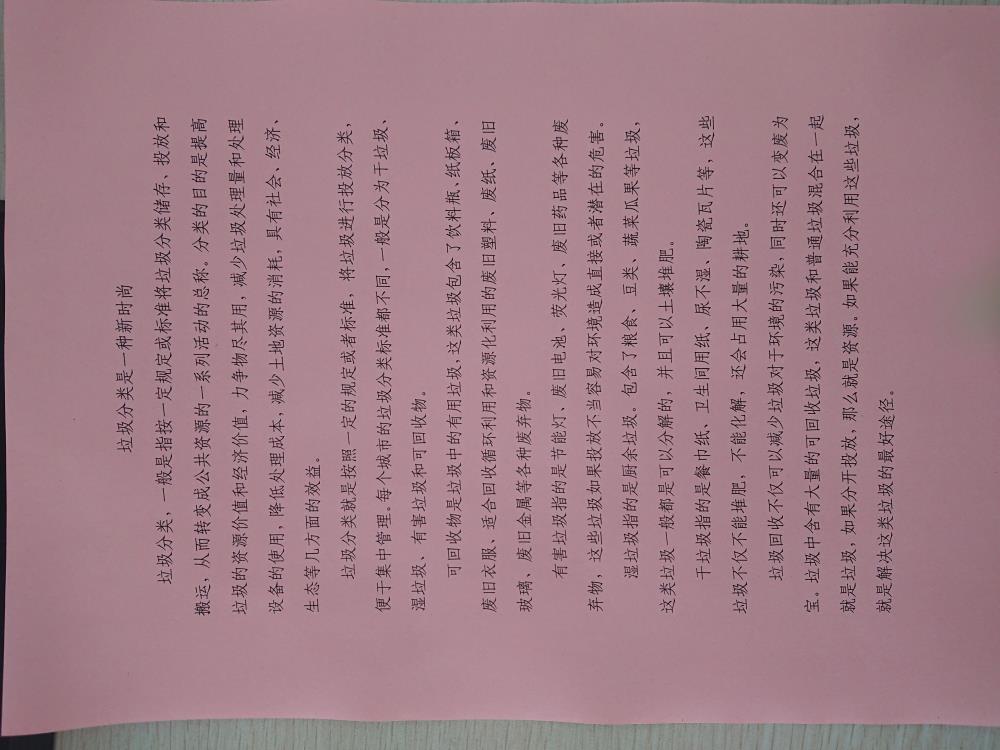 垃圾分类是一种新时尚
垃圾分类，一般是指按一定规定或标准将垃圾分类储存、投放和
搬运，从而转变成公共资源的一系列活动的总称。分类的目的是提高
垃圾的资源价值和经济价值，力争物尽其用，减少垃圾处理量和处理
设备的使用，降低处理成本，减少土地资源的消耗，具有社会、经济、
生态等几方面的效益。
垃圾分类就是按照一定的规定或者标准，将垃圾进行投放分类，
便于集中管理。每个城市的垃圾分类标准都不同，一般是分为干垃圾、
湿垃圾、有害垃圾和可回收物。
可回收物是垃圾中的有用垃圾，这类垃圾包含了饮料瓶、纸板箱、
废旧衣服、适合回收循环利用和资源化利用的废旧塑料、废纸、废旧
玻璃、废旧金属等各种废弃物。
有害垃圾指的是节能灯、废旧电池、荧光灯、废旧药品等各种废
弃物，这些垃圾如果投放不当容易对环境造成直接或者潜在的危害。
湿垃圾指的是厨余垃圾。包含了粮食、豆类、蔬菜瓜果等垃圾，
这类垃圾一般都是可以分解的，并且可以土壤堆肥。
干垃圾指的是餐巾纸、卫生间用纸、尿不湿、陶瓷瓦片等，这些
垃圾不仅不能堆肥，不能化解，还会占用大量的耕地。
垃圾回收不仅可以减少垃圾对于环境的污染，同时还可以变废为
宝。垃圾中含有大量的可回收垃圾，这类垃圾和普通垃圾混合在一起
就是垃圾，如果分开投放，那么就是资源。如果能充分利用这些垃圾，
就是解决这类垃圾的最好途径。